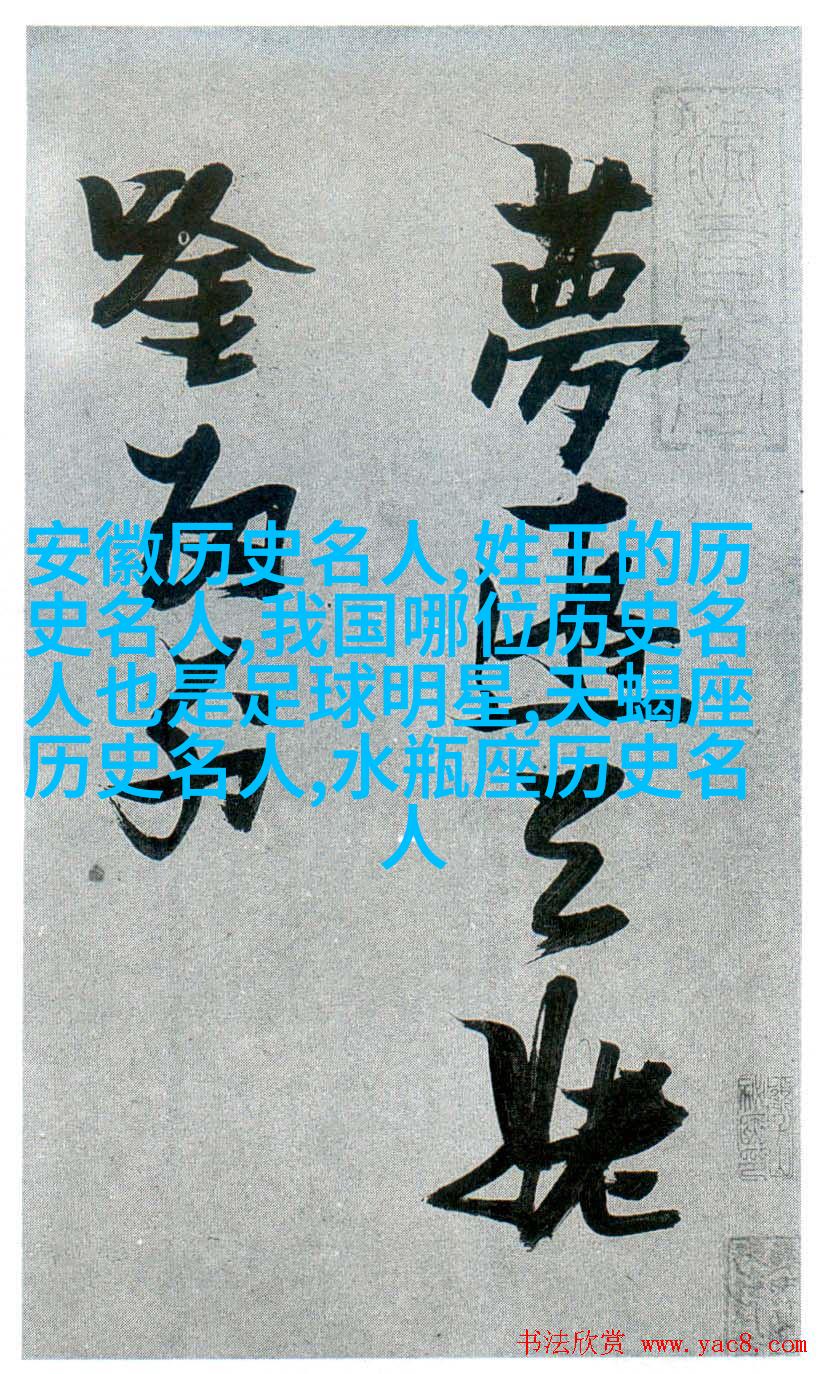 夢遊天姥
唫
安徽历史名人,姓王的历
史名人,我国哪位历史名
人也是足球明星,天蝎座
历史名人,水瓶座历史名
人
书法欣赏 www.yac8.com